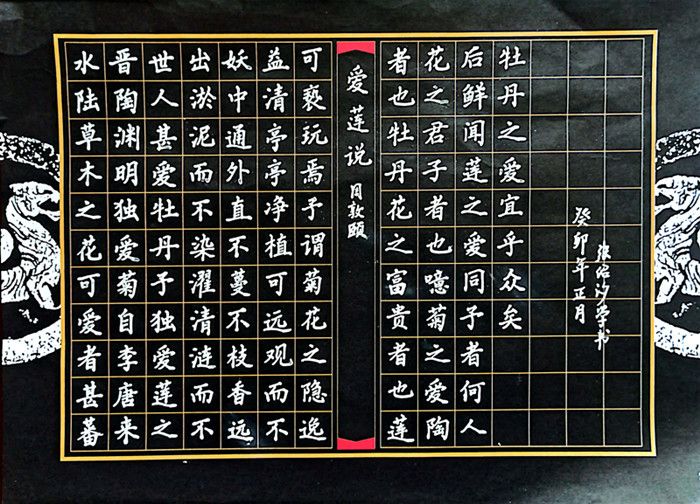 水陆草木之花可爱者甚蕃
晋陶渊明独爱菊自李唐来
世人甚爱牡丹予独爱莲之
出淤泥而不染濯清涟而不
妖中通外直不蔓不枝香远
益清亭亭净植可远观而不
可亵玩焉予谓菊花之隐逸
爱莲说 周敦颐
者也牡丹花之富贵者也莲
花之君子者也噫菊之爱陶
后鲜闻莲之爱同予者何人
牡丹之爱宜乎众矣
癸卯年正月
张汐学书